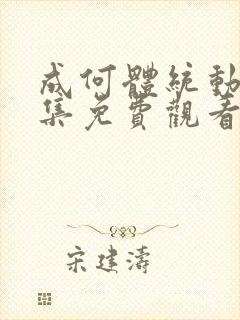 成何體統動
集免費觀看
宋建濤